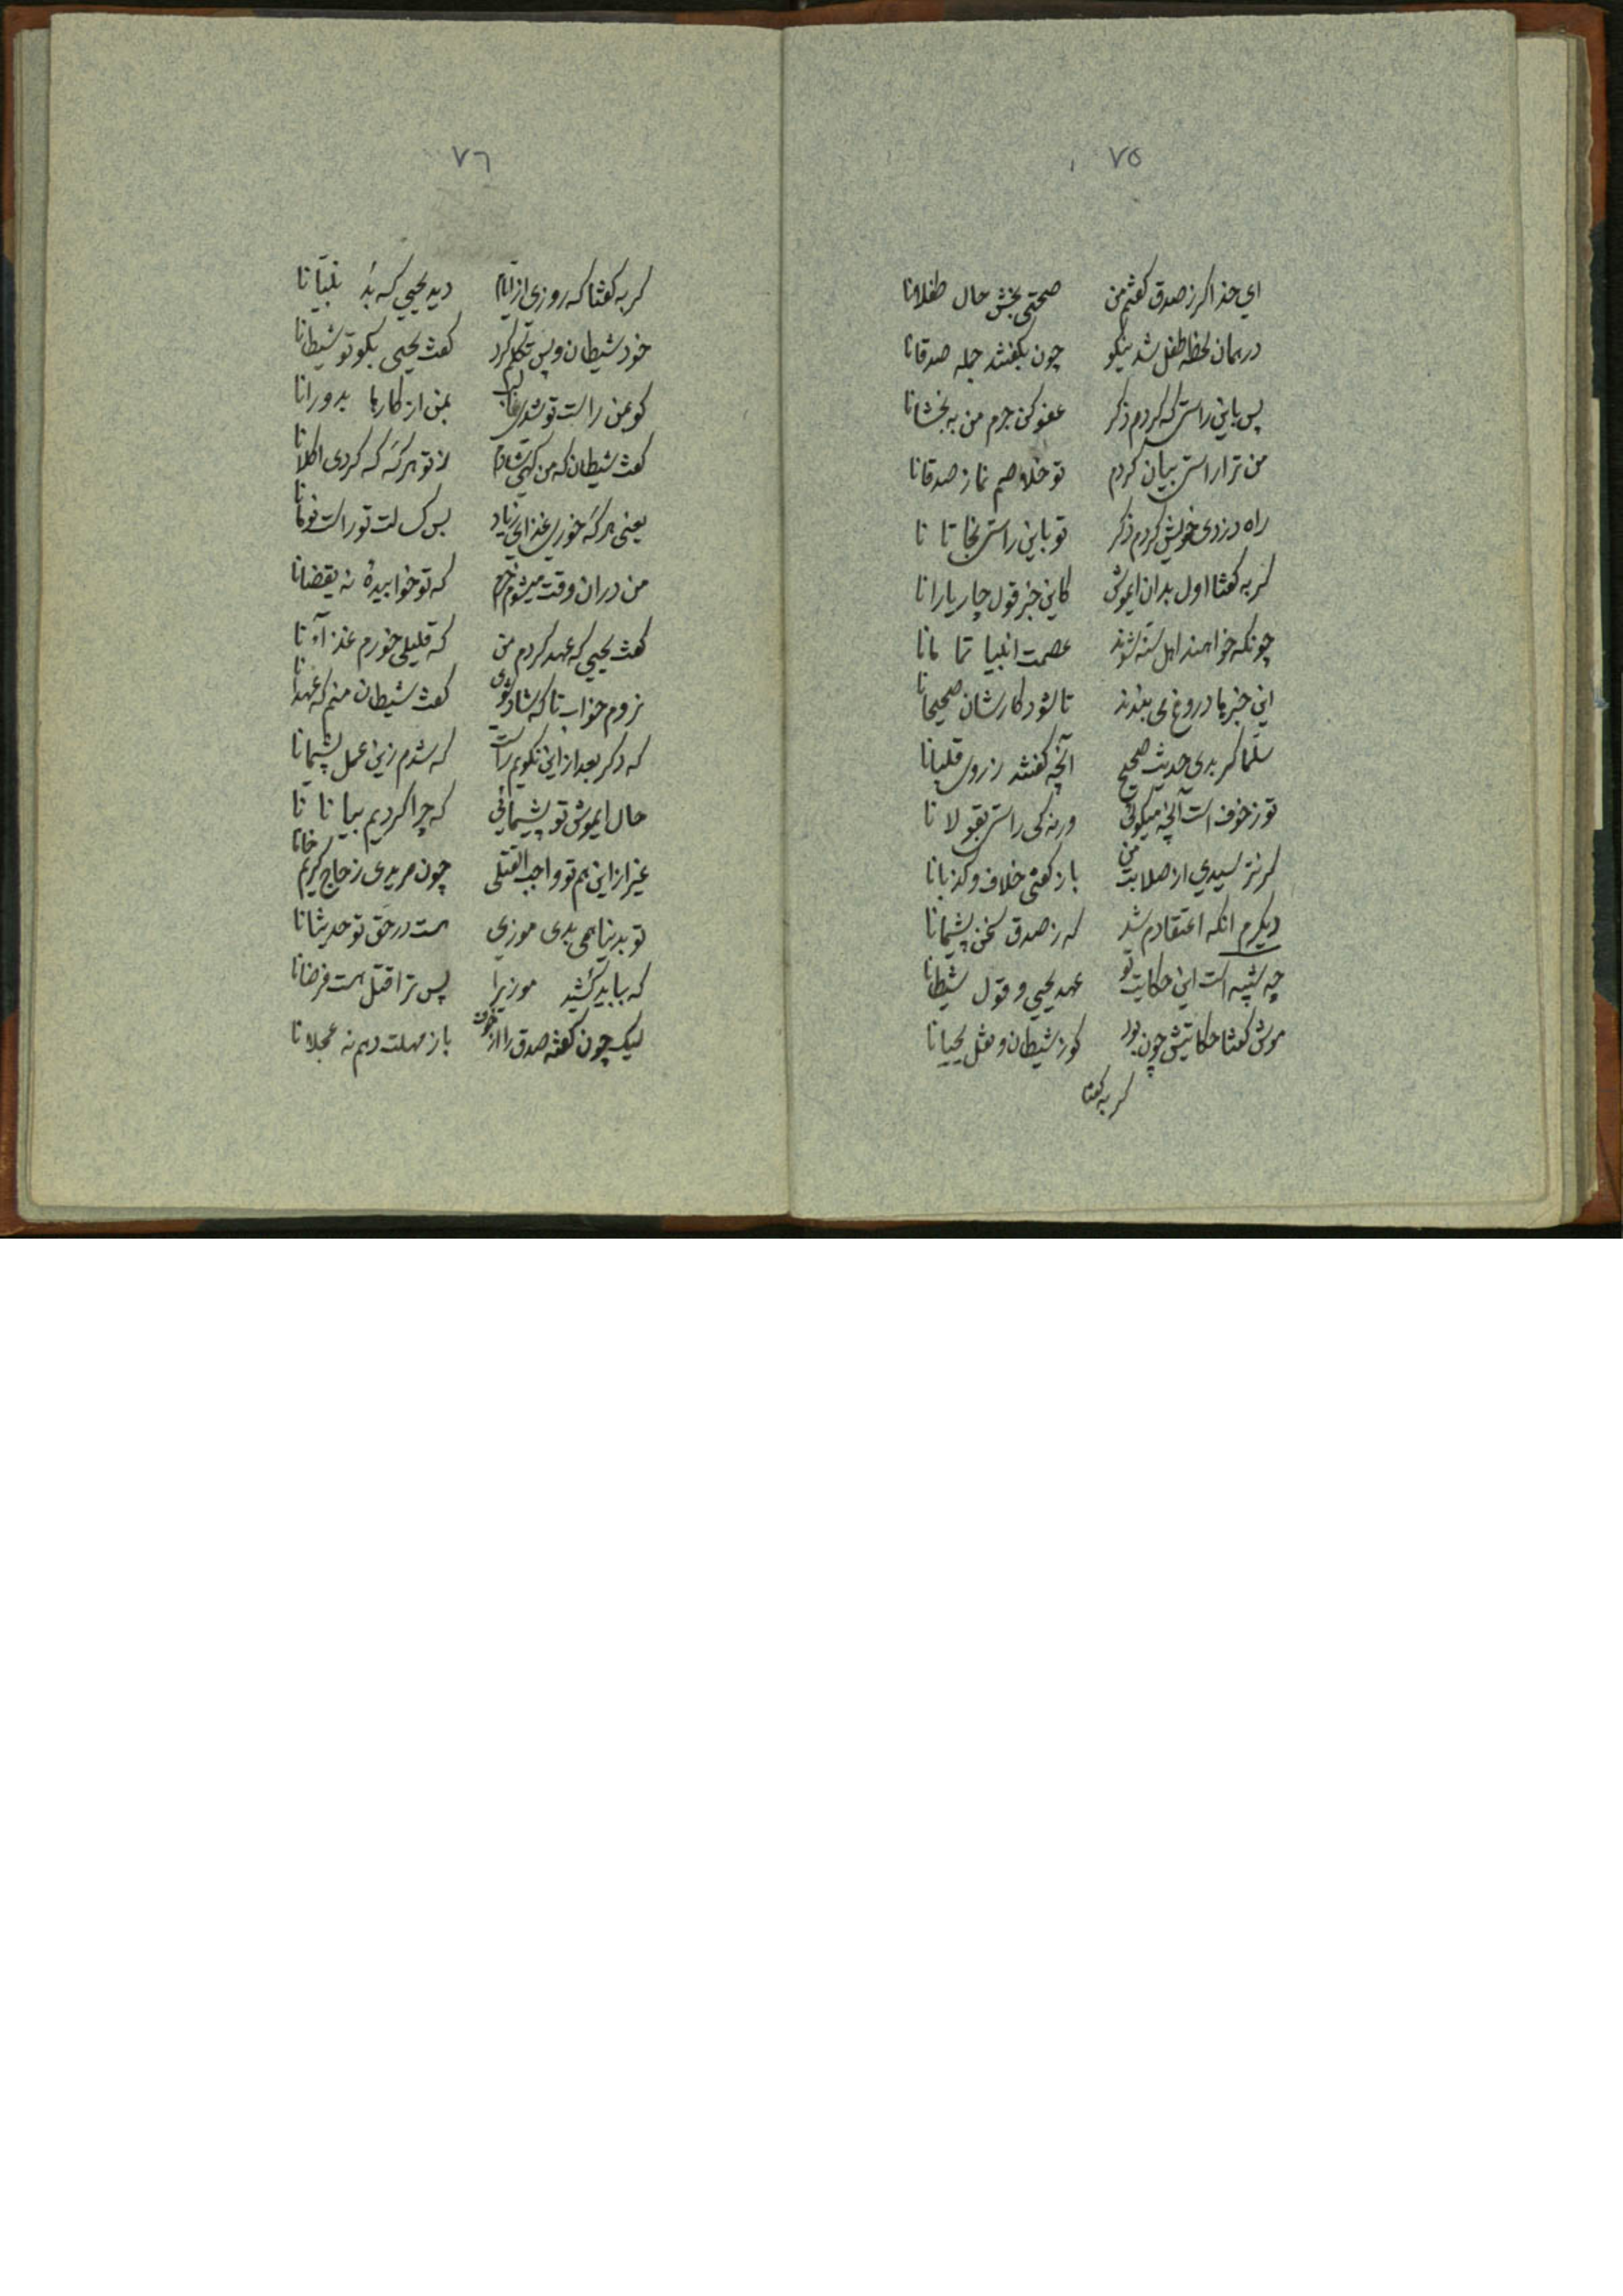 ٧٥
ای خدا گر ز صدق گفتم من صحتی بخش حال طفلانا
در همان لحظه طفل شد نیکو چون بگفتند جمله صدقانا
پس باین راستی که کردم ذکر عفو کن جرم من به بخشانا
من ترا راستی بیان کردم تو خلاصم نما ز صدقانا
راه دزدی خویش کردم ذکر تو باین راستی نجاتا نا
گربه گفتا اول بدان ایموش کاین خبر قول چار یارانا
چونکه خواهند اهل سنه شوند عصمت انبیا تما مانا
این خبرها دروغ می بندند تا شود کارشان صحیحانا
سلما گر بدی حدیث صحیح آنچه گفتند ز روی قلبانا
تو ز خوف است آنچه میگوئی ورنه کی راستی بقو لا نا
گر نترسیدی از صلابت من باز گفتی خلاف و کذبانا
دیگرم انکه اعتقادم شد که ز صدق سخن پشیمانا
چه شبیه است این حکایت تو عهد یحیی و قول شیطانا
موش گفتا حکایتش چون بود گو ز شیطان و نقل یحیانا
گربه گفتا
٧٦
گربه گفتا که روزی از ایام دید یحیی که بُد نبیّانا
خود شیطان و پس تکلم کرد گفت یحیی بگو تو شیطانا
گو بمن راست تو شدی غالب بمن از کارها بدورانا
گفت شیطان که من گهی شادم از تو هر گه که کردی اکلانا
یعنی هر گه خوری غذای زیاد پس کسالت تو راست نومانا
من در ان وقت میشوم خرم که تو خوابیدهٔ نه یقضانا
گفت یحیی که عهد کردم من که قلیلی خورم غذاآء نا
نروم خواب تا که شاد شوی گفت شیطان منم که عهدانا
که دگر بعد از این نگویم راست که شدم زین عمل پشیمانا
حال ایموش تو پشیمانی که چرا کردیم بیا نا تا
غیر از این هم تو واجب القتلی چون مریدی ز حاج کریم خانا
تو بدنیا همی بدی موزی هست در حق تو حدیثانا
که بباید کُشید موزیرا پس ترا قتل هست فرضانا
لیک چون گفته صدق را از خوف باز مهلت دهم نه عجلانا